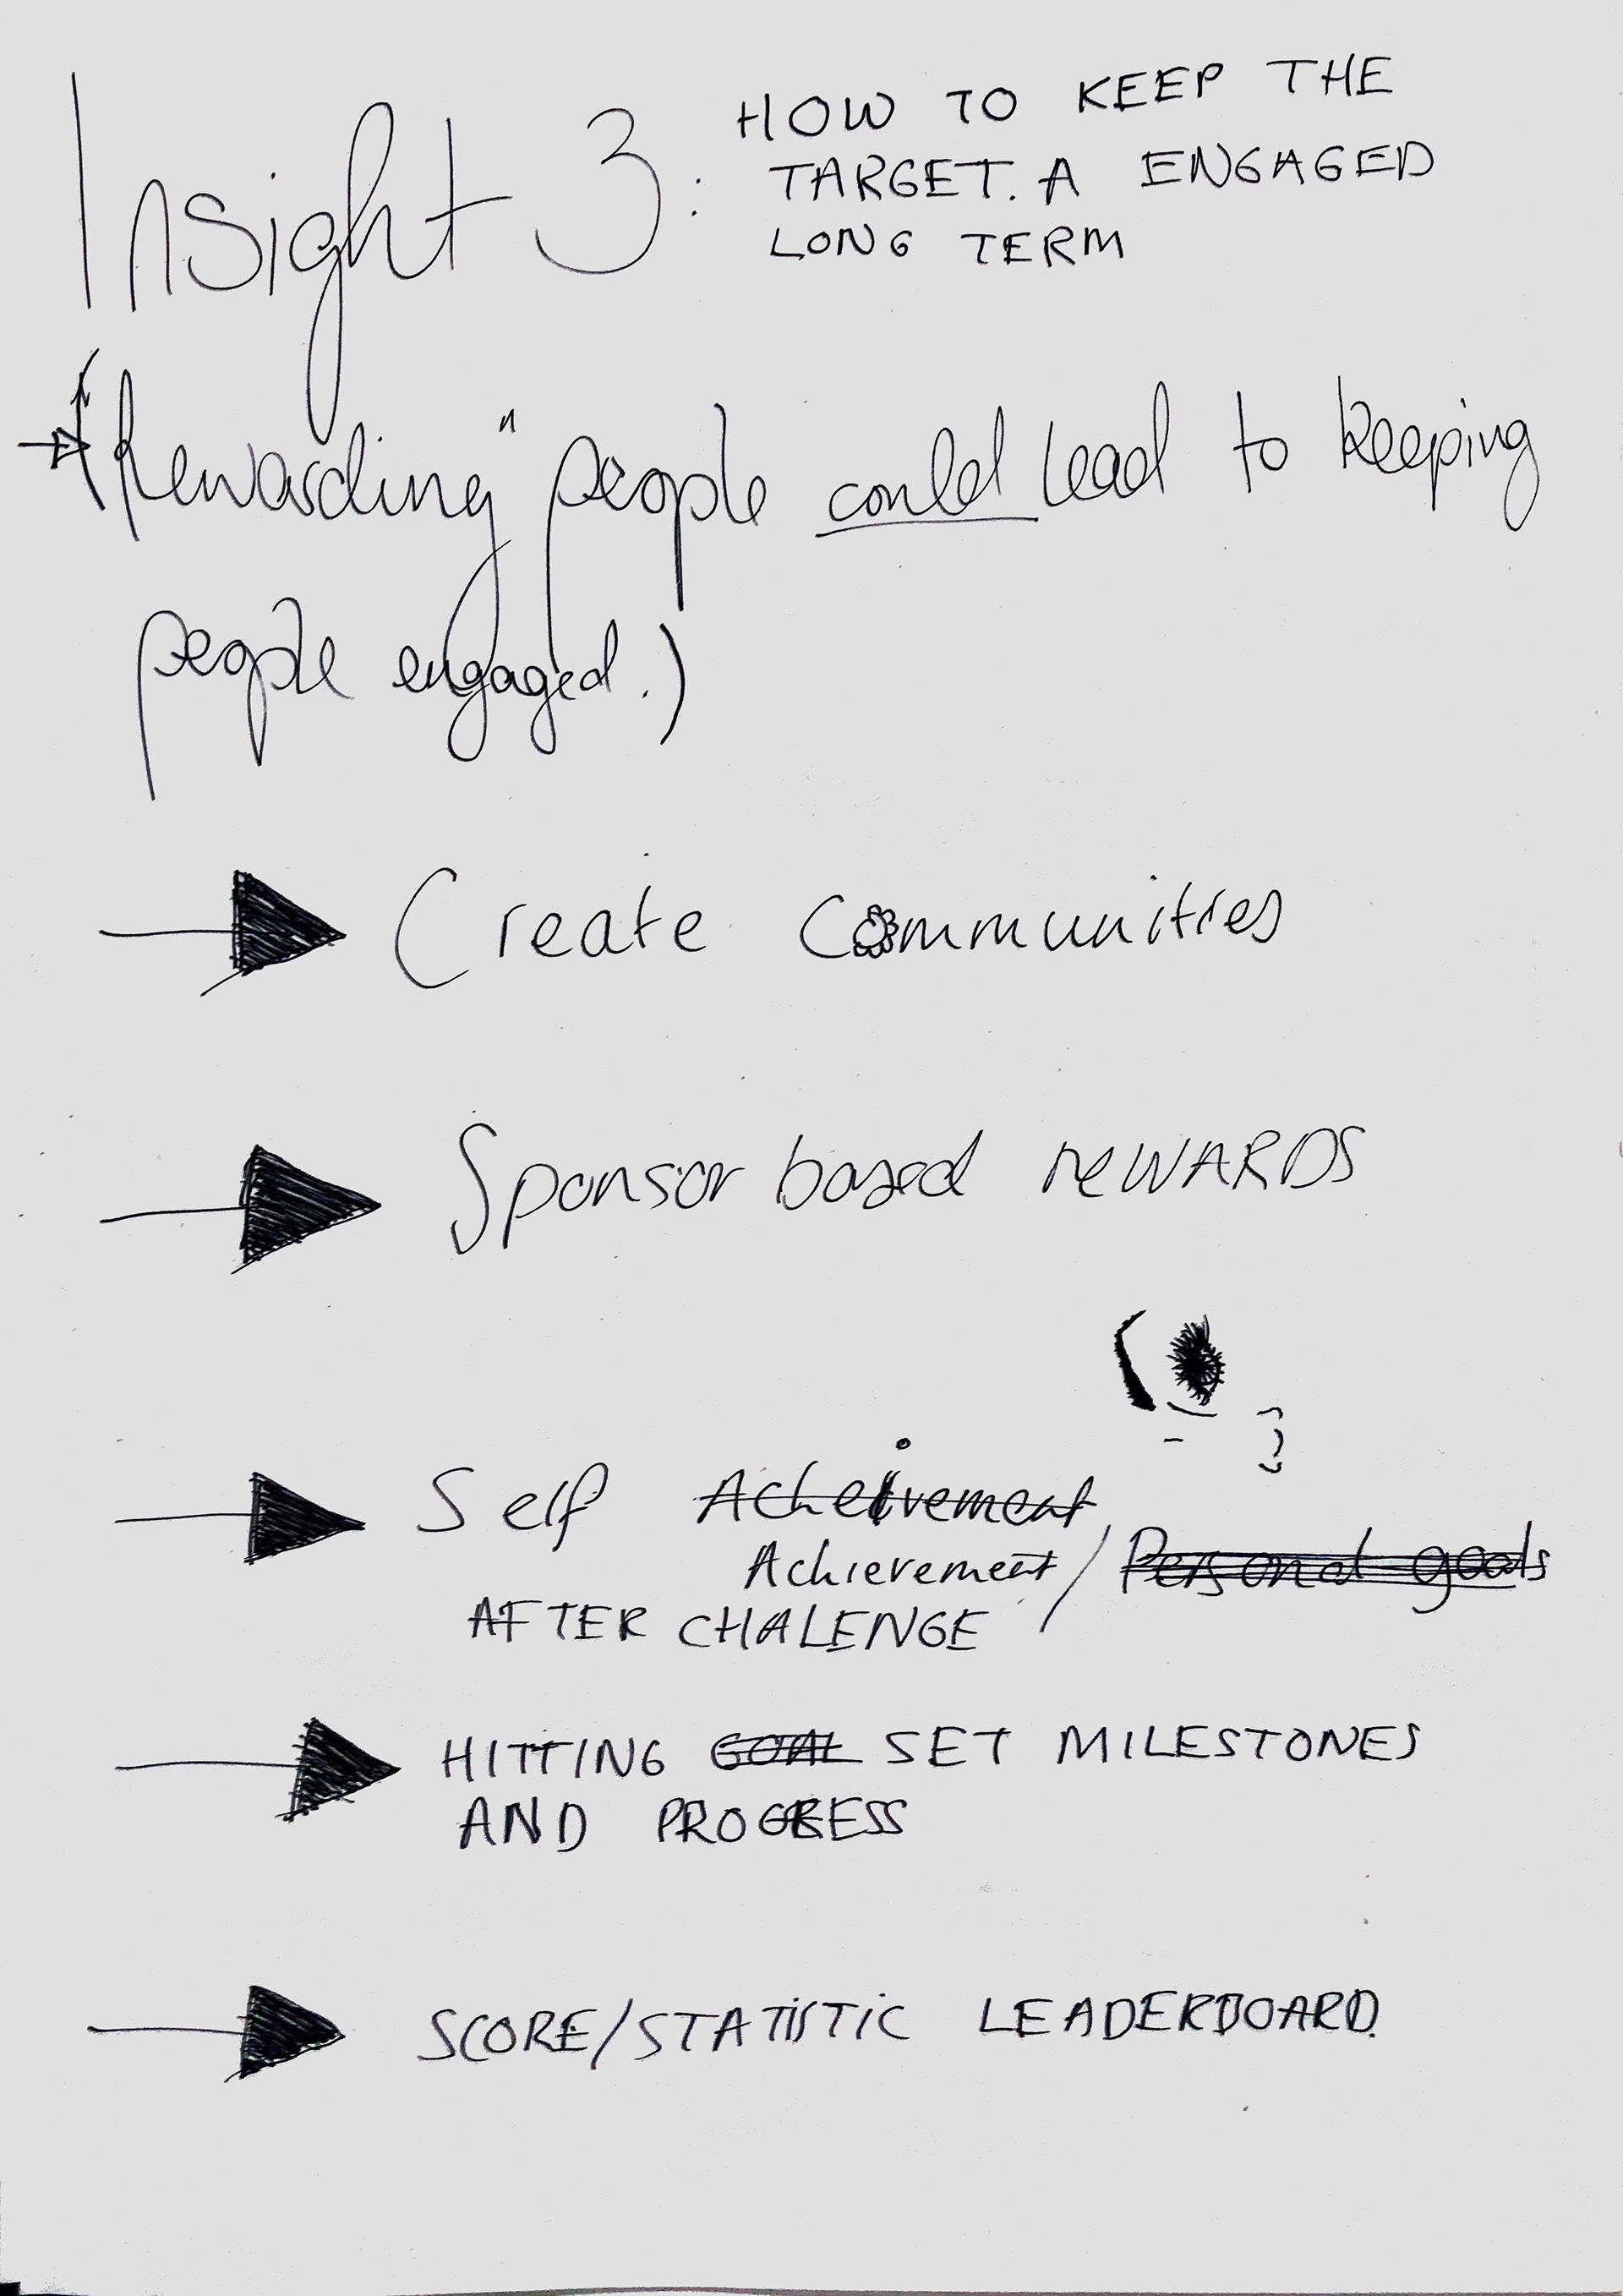 Insight 3: HOW TO KEEP THE
TARGET. A ENGAGED
LONG TERM
("Rewarding" people could lead to keeping
people engaged.)
Create Communities
Sponsor based reWARDS
Self Acheivement
Achievement / Personal goals
AFTER CHALENGE
HITTING GOAL SET MILESTONES
AND PROGRESS
SCORE/STATISTIC LEADERBOARD.